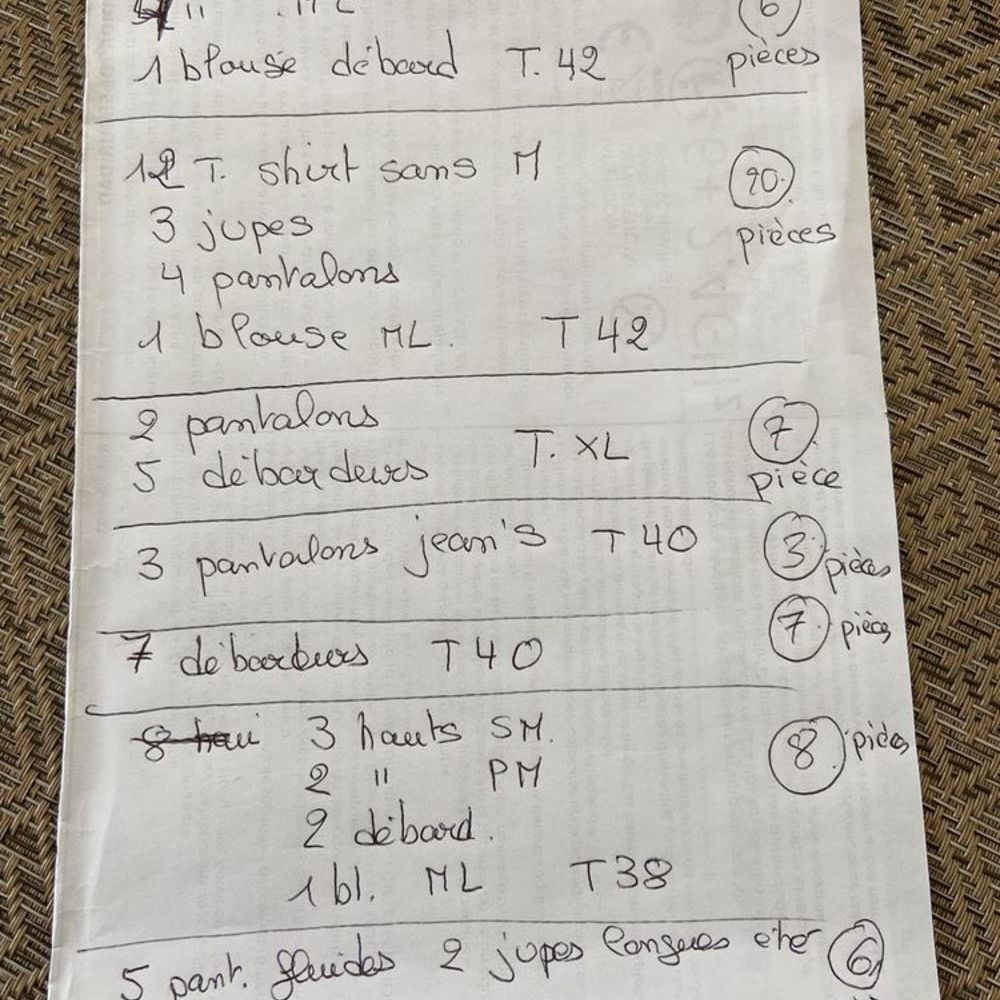 " ML 6
1 blouse débard T. 42 pièces
12 T. shirt sans M 20
3 jupes pièces
4 pantalons
1 blouse ML. T 42
2 pantalons 7
5 débardeurs T. XL pièce
3 pantalons jean's T 40 3 pièces
7 débardeurs T 40 7 pièces
8 hau 3 hauts SM. 8 pièces
2 " PM
2 débard.
1 bl. ML T 38
5 pant. fluides 2 jupes longues été 6